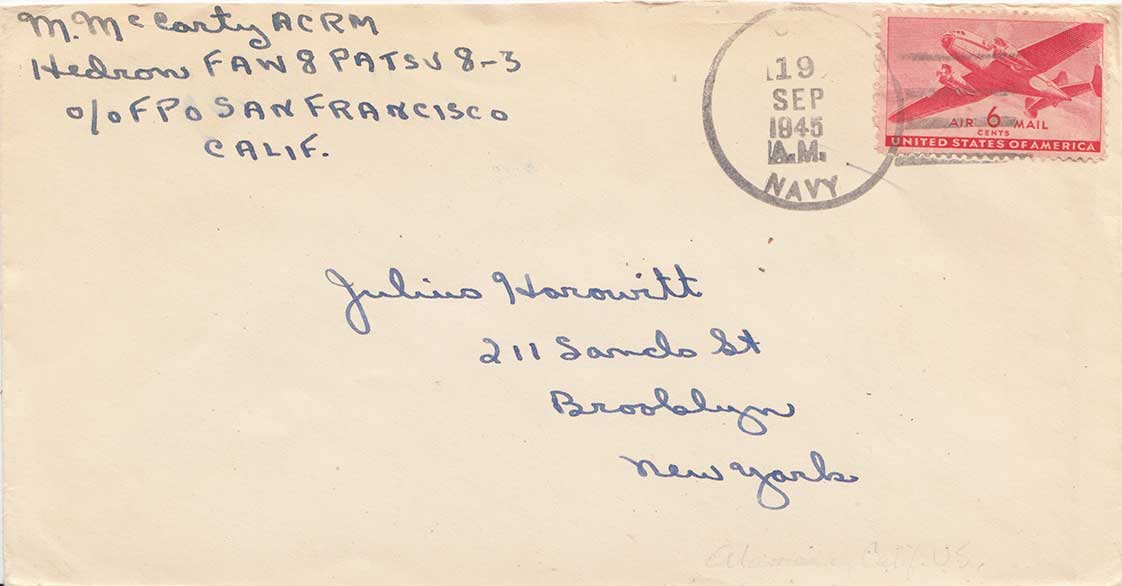 M. McCarty ACRM
Hedron FAW 8 PATSU 8-3
c/o FPO SAN FRANCISCO
CALIF.
19
SEP
1945
A.M.
NAVY
AIR 6 MAIL
CENTS
UNITED STATES OF AMERICA
Julius Horowitt
211 Sands St
Brooklyn
New York
Calif. U.S.